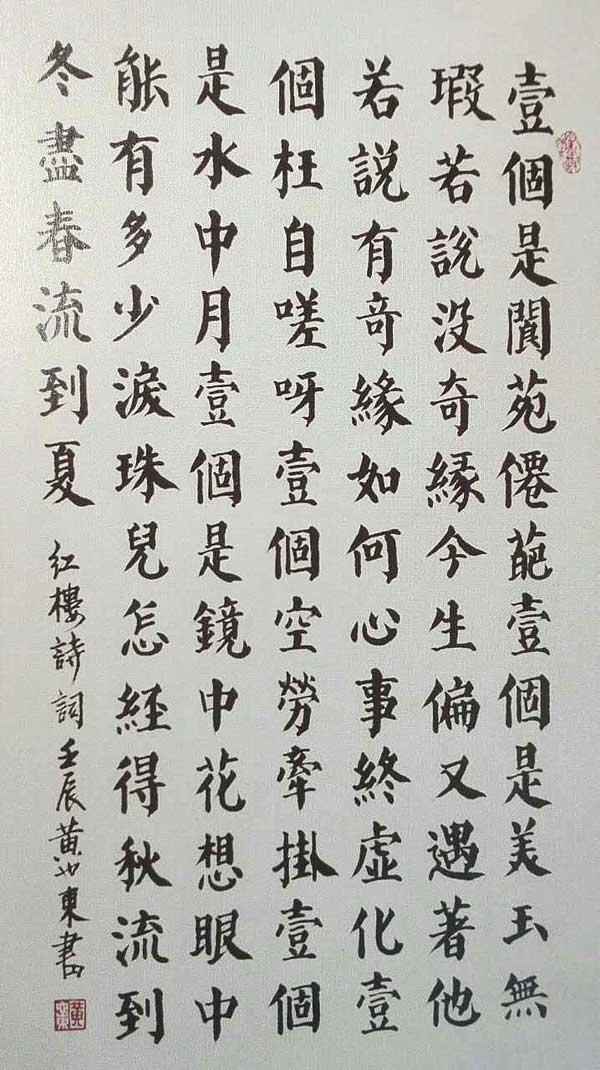 壹個是閬苑僊葩壹個是美玉無
瑕若說沒奇緣今生偏又遇著他
若說有奇緣如何心事終虛化壹
個枉自嗟呀壹個空勞牽掛壹個
是水中月壹個是鏡中花想眼中
能有多少淚珠兒怎經得秋流到
冬盡春流到夏
红樓詩詞壬辰黄東書